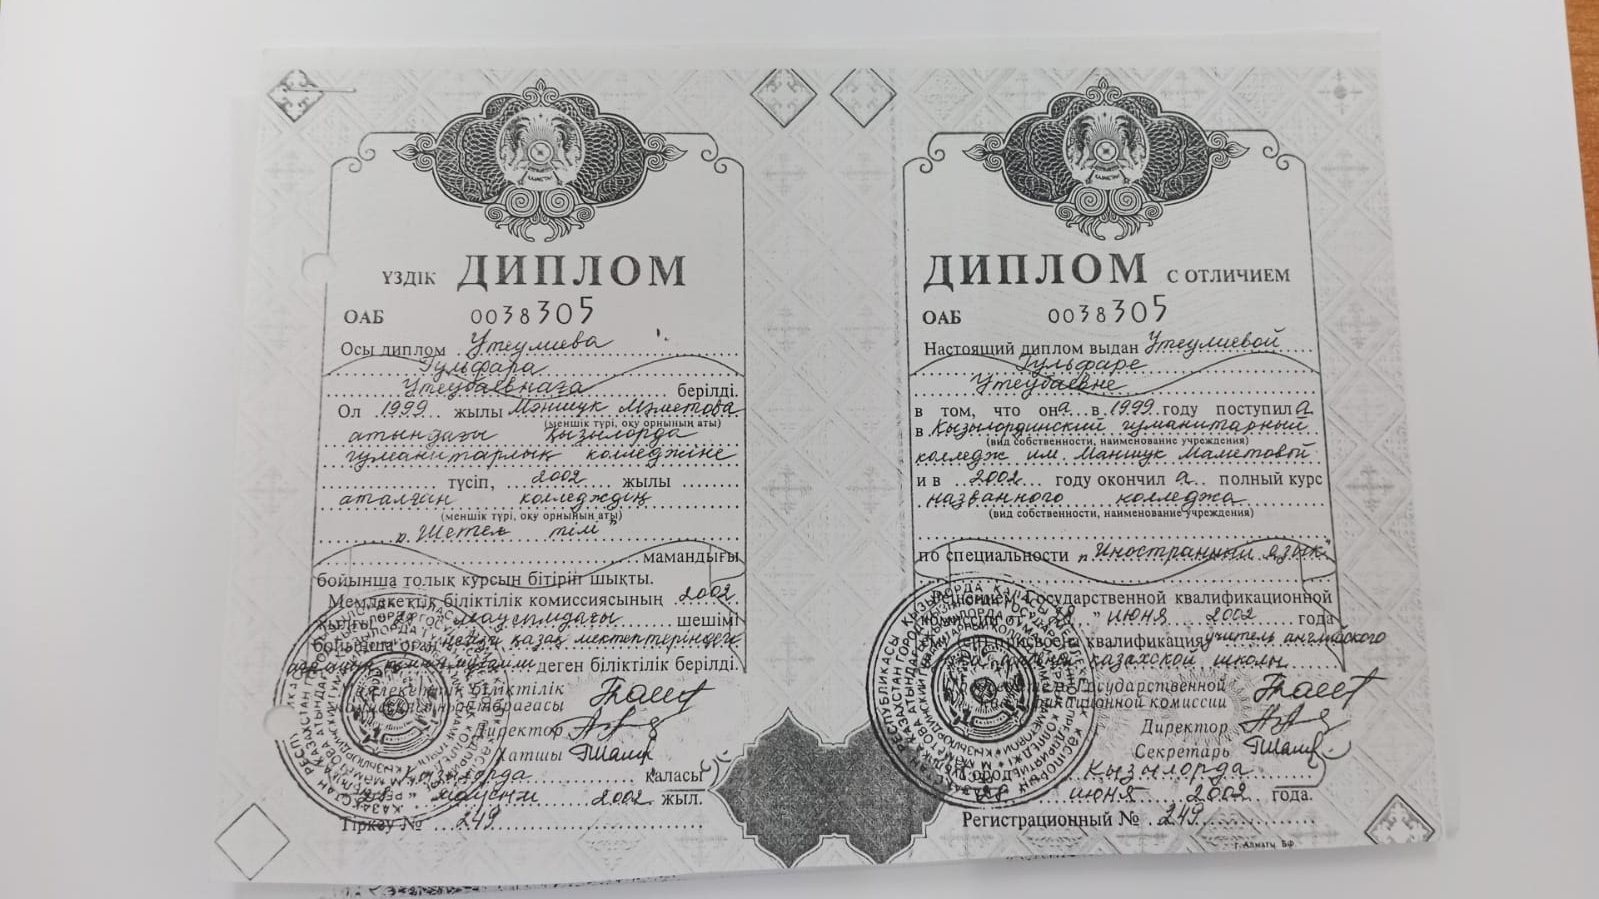 ҮЗДІК ДИПЛОМ
ОАБ 0038305
Осы диплом Утеулиева
Гульфара
Утеубаевнаға берілді.
Ол 1999 жылы Мәншүк Мәметова
(меншік түрі, оқу орнының аты)
атындағы Қызылорда
гуманитарлық колледжіне
түсіп, 2002 жылы
аталған колледждің
(меншік түрі, оқу орнының аты)
"Шетел тілі"
мамандығы
бойынша толық курсын бітіріп шықты.
Мемлекеттік біліктілік комиссиясының 2002
жылғы маусымдағы шешімі
бойынша оған қазақ мектептеріндегі
деген біліктілік берілді.
Мемлекеттік біліктілік
комиссиясының төрағасы
Директор
Хатшы
Қызылорда қаласы
28 маусым 2002 жыл.
Тіркеу № 249
ДИПЛОМ С ОТЛИЧИЕМ
ОАБ 0038305
Настоящий диплом выдан Утеулиевой
Гульфаре
Утеубаевне
в том, что она в 1999 году поступила
в Кызылординский гуманитарный
(вид собственности, наименование учреждения)
колледж им. Маншук Маметовой
и в 2002 году окончила полный курс
названного колледжа
(вид собственности, наименование учреждения)
по специальности "Иностранный язык"
Решением Государственной квалификационной
комиссии от " июня 2002 года
присвоена квалификация учитель английского
казахской школы
Государственной
квалификационной комиссии
Директор
Секретарь
Город Кызылорда
28 июня 2002 года.
Регистрационный № 249
г. Алматы БФ